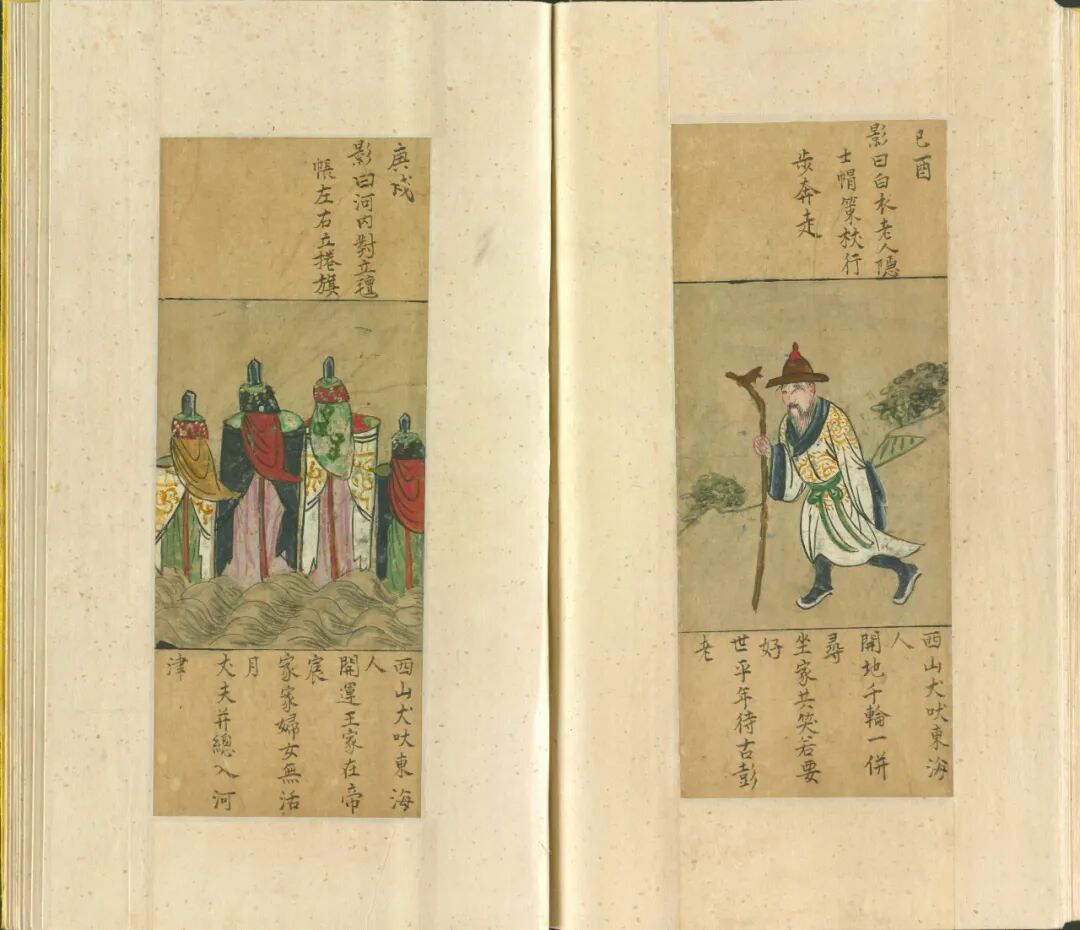 己酉
影曰白衣老人隱
士帽策杖行
步奔走
西山犬吠東海
人
開地千輪一併
尋
坐家共笑若要
好
世平年待古彭
老
庚戌
影曰河內對立氊
帳左右立捲旗
西山犬吠東海
人
開運王家在帝
宸
家家婦女無活
月
大夫并總入河
津